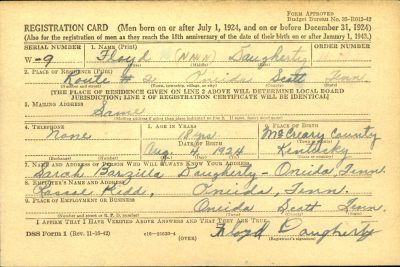 FORM APPROVED
Budget Bureau No. 33-R012-42
REGISTRATION CARD (Men born on or after July 1, 1924, and on or before December 31, 1924)
(Also for the registration of men as they reach the 18th anniversary of the date of their birth on or after January 1, 1943.)
SERIAL NUMBER 1. NAME (Print) ORDER NUMBER
W-9 Floyd (NMN) Daugherty
(First) (Middle) (Last)
2. PLACE OF RESIDENCE (Print)
Route # 2 Oneida Scott Tenn
(Number and street) (Town, township, village, or city) (County) (State)
[THE PLACE OF RESIDENCE GIVEN ON LINE 2 ABOVE WILL DETERMINE LOCAL BOARD
JURISDICTION; LINE 2 OF REGISTRATION CERTIFICATE WILL BE IDENTICAL]
3. MAILING ADDRESS
Same
4. TELEPHONE 5. AGE IN YEARS 6. PLACE OF BIRTH
None 18 yrs. McCreary County
DATE OF BIRTH
Aug 4, 1924 Kentucky
(Exchange) (Number) (Mo.) (Day) (Yr.) (State or country)
7. NAME AND ADDRESS OF PERSON WHO WILL ALWAYS KNOW YOUR ADDRESS
Sarah Barzilla Daugherty - Oneida, Tenn.
8. EMPLOYER'S NAME AND ADDRESS
Kidd, Oneida, Tenn.
9. PLACE OF EMPLOYMENT OR BUSINESS
Oneida Scott Tenn.
(Number and street or R. F. D. number) (Town) (County) (State)
I AFFIRM THAT I HAVE VERIFIED ABOVE ANSWERS AND THAT THEY ARE TRUE.
DSS Form 1 (Rev. 11-16-42) (OVER) Floyd Daugherty
(Registrant's signature)